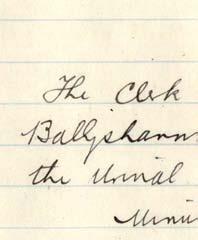 The Clerk
Ballyshann
the Urinal
Minu